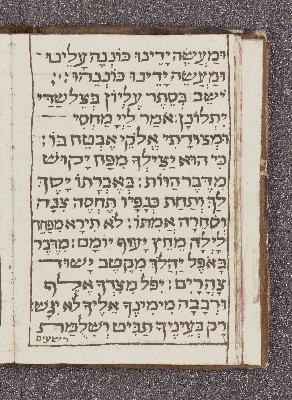 וּמַעֲשֵׂה יָדֵינוּ כּוֹנְנָה עָלֵינוּ
וּמַעֲשֵׂה יָדֵינוּ כּוֹנְנֵהוּ:
יוֹשֵׁב בְּסֵתֶר עֶלְיוֹן בְּצֵל שַׁדַּי
יִתְלוֹנָן: אֹמַר לַייָ מַחְסִי
וּמְצוּדָתִי אֱלֹקַי אֶבְטַח בּוֹ:
כִּי הוּא יַצִּילְךָ מִפַּח יָקוּשׁ
מִדֶּבֶר הַוּוֹת: בְּאֶבְרָתוֹ יָסֶךְ
לָךְ וְתַחַת כְּנָפָיו תֶּחְסֶה צִנָּה
וְסֹחֵרָה אֲמִתּוֹ: לֹא תִירָא מִפַּחַד
לָיְלָה מֵחֵץ יָעוּף יוֹמָם: מִדֶּבֶר
בָּאֹפֶל יַהֲלֹךְ מִקֶּטֶב יָשׁוּד
צָהֳרָיִם: יִפֹּל מִצִּדְּךָ אֶלֶף
וּרְבָבָה מִימִינֶךָ אֵלֶיךָ לֹא יִגָּשׁ:
רַק בְּעֵינֶיךָ תַבִּיט וְשִׁלֻּמַת
רשעים